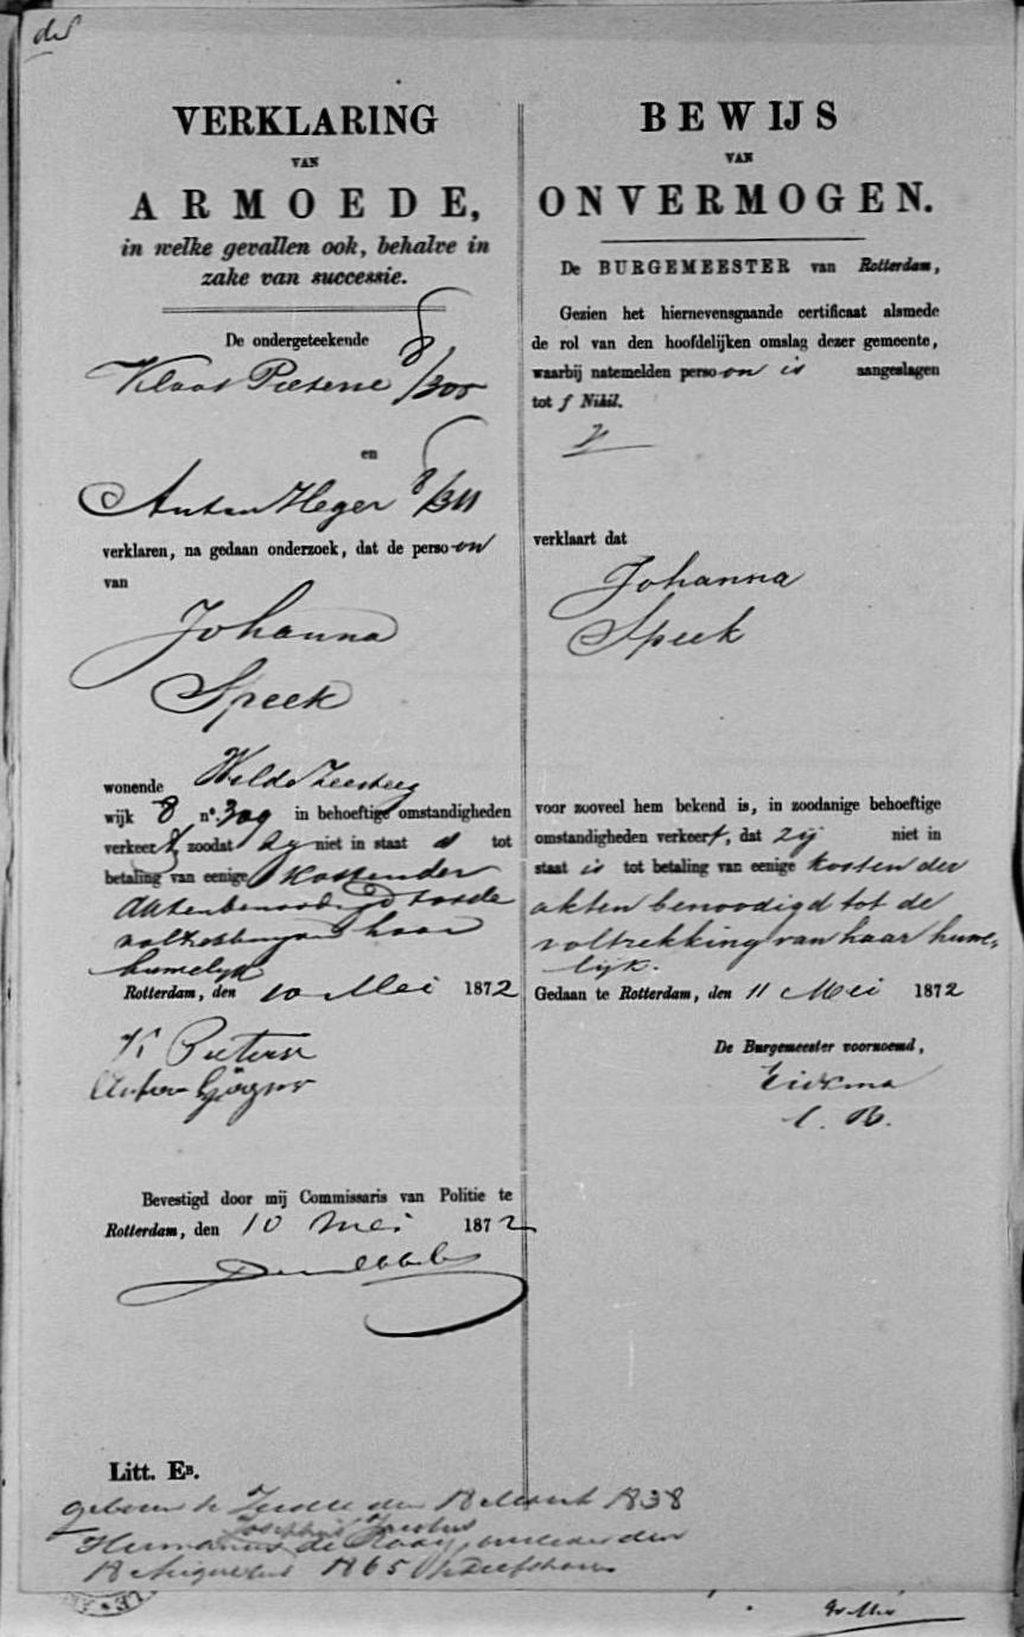 VERKLARING
VAN
ARMOEDE,
in welke gevallen ook, behalve in
zake van successie.
De ondergeteekende
Klaas Pieterse 8/305
en
Anton Heger 8/311
verklaren, na gedaan onderzoek, dat de perso-on
van
Johanna
Speek
wonende
wijk 8 no. 309 in behoeftige omstandigheden
verkeert, zoodat zy niet in staat is tot
betaling van eenige kosten der
akten benoodigd tot de
voltrekking van haar
huwelyk
Rotterdam, den 10 Mei 1872
K Pieterse
Anton
Bevestigd door mij Commissaris van Politie te
Rotterdam, den 10 Mei 1872
Litt. EB.
BEWIJS
VAN
ONVERMOGEN.
De BURGEMEESTER van Rotterdam,
Gezien het hiernevensgaande certificaat alsmede
de rol van den hoofdelijken omslag dezer gemeente,
waarbij natemelden perso-on is aangeslagen
tot f Nihil.
verklaart dat
Johanna
Speek
voor zooveel hem bekend is, in zoodanige behoeftige
omstandigheden verkeert, dat zij niet in
staat is tot betaling van eenige kosten der
akten benoodigd tot de
voltrekking van haar huwe-
lijk.
Gedaan te Rotterdam, den 11 Mei 1872
De Burgemeester voornoemd,
l. B.
geboren te den 18 Maart 1838
Josephus Jacobus
Hermanus de Raay, overleden den
18 Augustus 1865 te Delfshaven